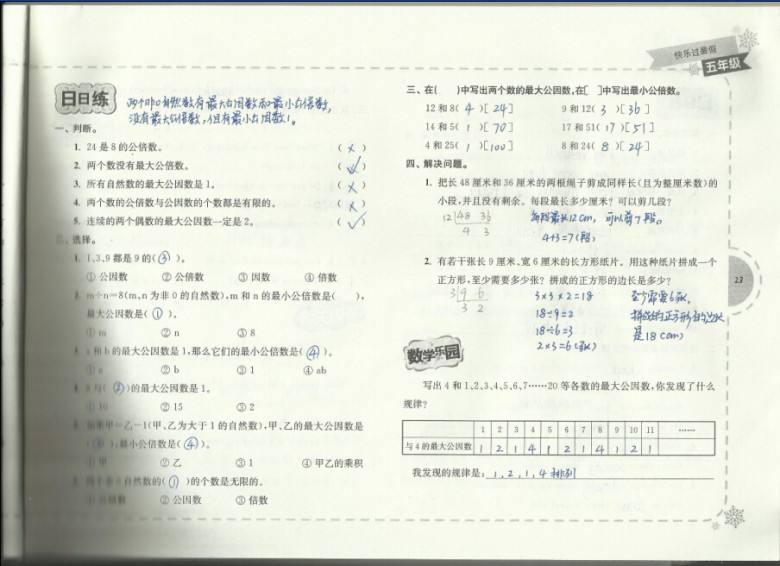 快乐过暑假
五年级
日日练
两个非0自然数有最大公因数和最小公倍数,
没有最大公倍数,但有最小公因数1。
一、判断。
1. 24是8的公倍数。 (×)
2. 两个数没有最大公倍数。 (√)
3. 所有自然数的最大公因数是1。 (×)
4. 两个数的公倍数与公因数的个数都是有限的。 (×)
5. 连续的两个偶数的最大公因数一定是2。 (√)
二、选择。
1. 1,3,9都是9的(③)。
①公因数 ②公倍数 ③因数 ④倍数
2. m÷n=8(m、n为非0的自然数),m和n的最小公倍数是( ),
最大公因数是( )。
①m ②n ③8
3. a和b的最大公因数是1,那么它们的最小公倍数是(④)。
①a ②b ③1 ④ab
4. 8与(②)的最大公因数是1。
①10 ②15 ③2
5. 如果甲=乙-1(甲、乙为大于1的自然数),甲、乙的最大公因数是
(③),最小公倍数是(④)。
①甲 ②乙 ③1 ④甲乙的乘积
6. 两个非0自然数的(①)的个数是无限的。
①公倍数 ②公因数 ③倍数
三、在( )中写出两个数的最大公因数,在[ ]中写出最小公倍数。
12和8(4)[24] 9和12(3)[36]
14和5(1)[70] 17和51(17)[51]
4和25(1)[100] 8和24(8)[24]
四、解决问题。
1. 把长48厘米和36厘米的两根绳子剪成同样长(且为整厘米数)的
小段,并且没有剩余。每段最长多少厘米?可以剪几段?
12 48 36 每段最长12cm,可以剪7段。
4 3 4+3=7(段)
2. 有若干张长9厘米、宽6厘米的长方形纸片。用这种纸片拼成一个
正方形,至少需要多少张?拼成的正方形的边长是多少?
3 9 6 3×3×2=18 至少需要6张,
3 2 18÷9=2 拼成的正方形的边长
18÷6=3 是18cm
2×3=6(张)
23
数学乐园
写出4和1、2、3、4、5、6、7……20等各数的最大公因数,你发现了什么
规律?
1 2 3 4 5 6 7 8 9 10 11 ……
与4的最大公因数 1 2 1 4 1 2 1 4 1 2 1
我发现的规律是:1,2,1,4排列